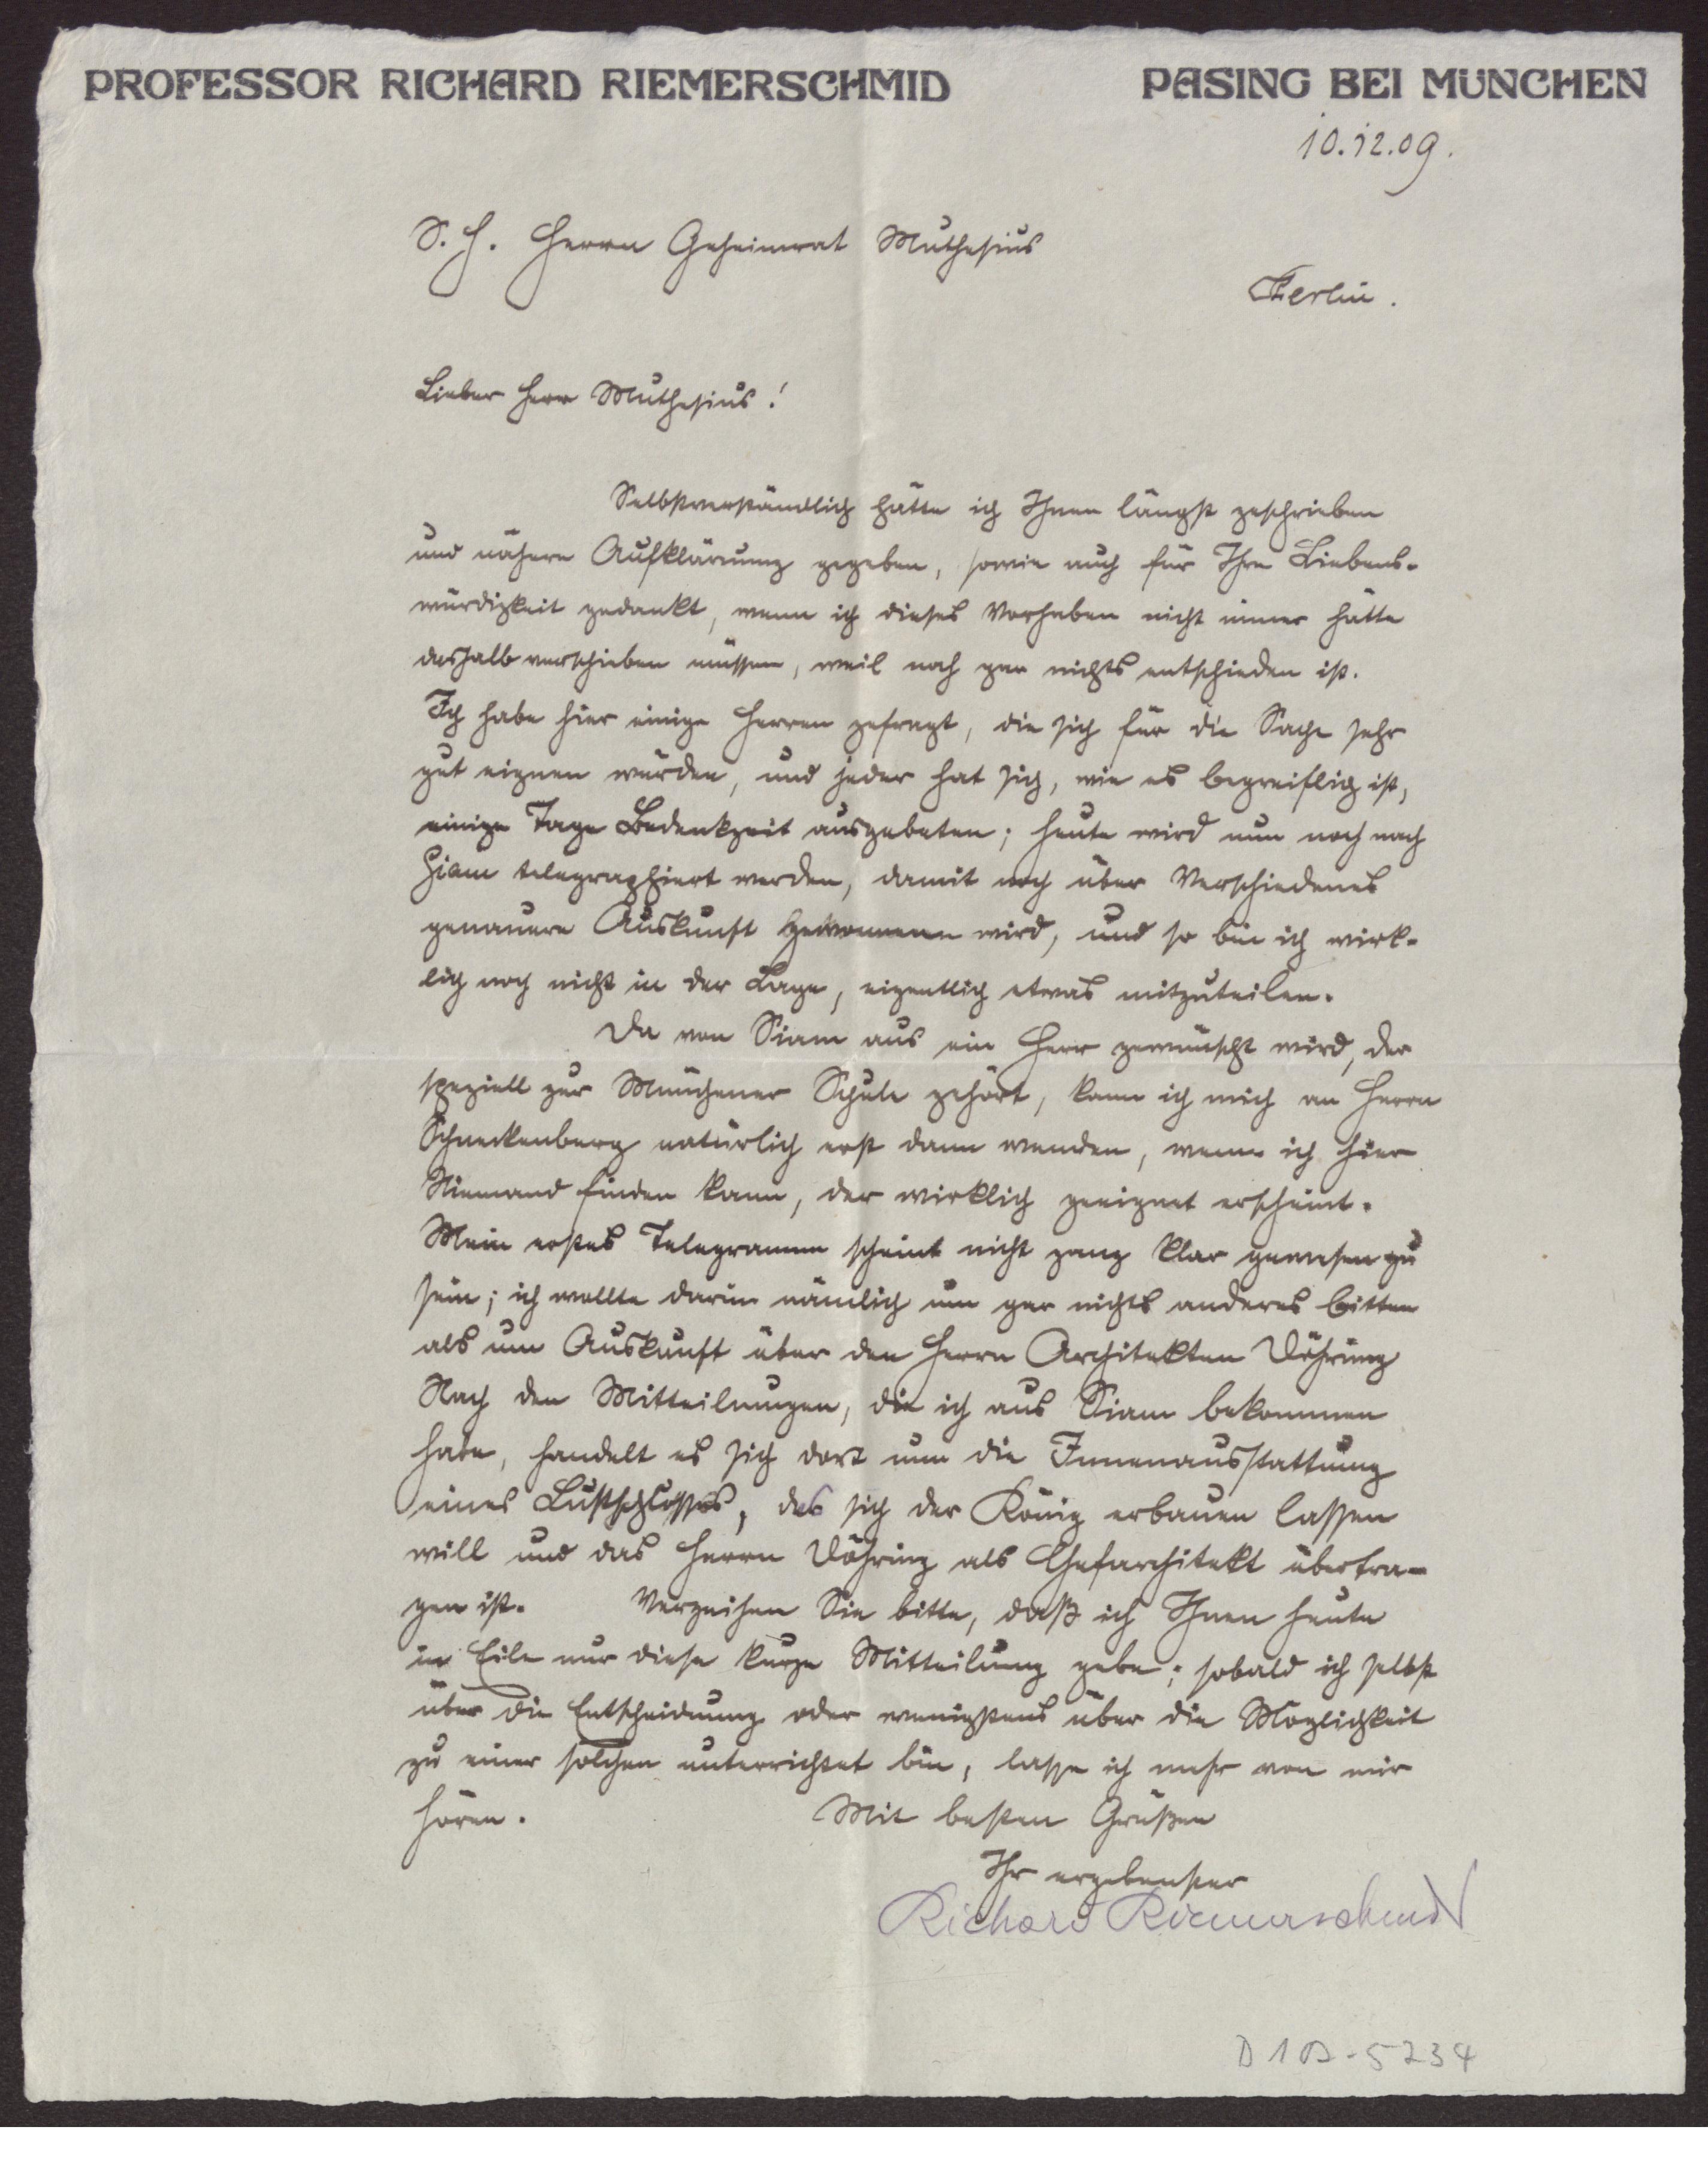 PROFESSOR RICHARD RIEMERSCHMID PASING BEI MÜNCHEN
10.12.09.
S. H. Herrn Geheimrat Muthesius
Berlin.
Lieber Herr Muthesius!
Selbstverständlich hätte ich Ihnen längst geschrieben
und nähere Aufklärung gegeben, sowie auch für Ihre Liebens-
würdigkeit gedankt, wenn ich dieses Vorhaben nicht immer hätte
deshalb verschieben müssen, weil noch gar nichts entschieden ist.
Ich habe hier einige Herren gefragt, die sich für die Sache sehr
gut eignen würden, und jeder hat sich, wie es begreiflich ist,
einige Tage Bedenkzeit ausgebeten; heute wird nun noch nach
Siam telegraphiert werden, damit noch über Verschiedenes
genauere Auskunft gewonnen wird, und so bin ich wirk-
lich noch nicht in der Lage, eigentlich etwas mitzuteilen.
Da von Siam aus ein Herr gewünscht wird, der
speziell zur Münchener Schule gehört, kann ich mich an Herrn
Schneckenberg natürlich erst dann wenden, wenn ich hier
Niemand finden kann, der wirklich geeignet erscheint.
Mein erstes Telegramm scheint nicht ganz klar gewesen zu
sein; ich wollte darin nämlich um gar nichts anderes bitten
als um Auskunft über den Herrn Architekten Döhring
Nach den Mitteilungen, die ich aus Siam bekommen
habe, handelt es sich dort um die Innenausstattung
eines Lustschlosses, das sich der König erbauen lassen
will und das Herrn Döhring als Chefarchitekt übertra-
gen ist. Verzeihen Sie bitte, daß ich Ihnen heute
in Eile nur diese kurze Mitteilung gebe; sobald ich selbst
über die Entscheidung oder wenigstens über die Möglichkeit
zu einer solchen unterrichtet bin, lasse ich mehr von mir
hören. Mit besten Grüßen
Ihr ergebenster
Richard Riemerschmid
D 1 B - 5234